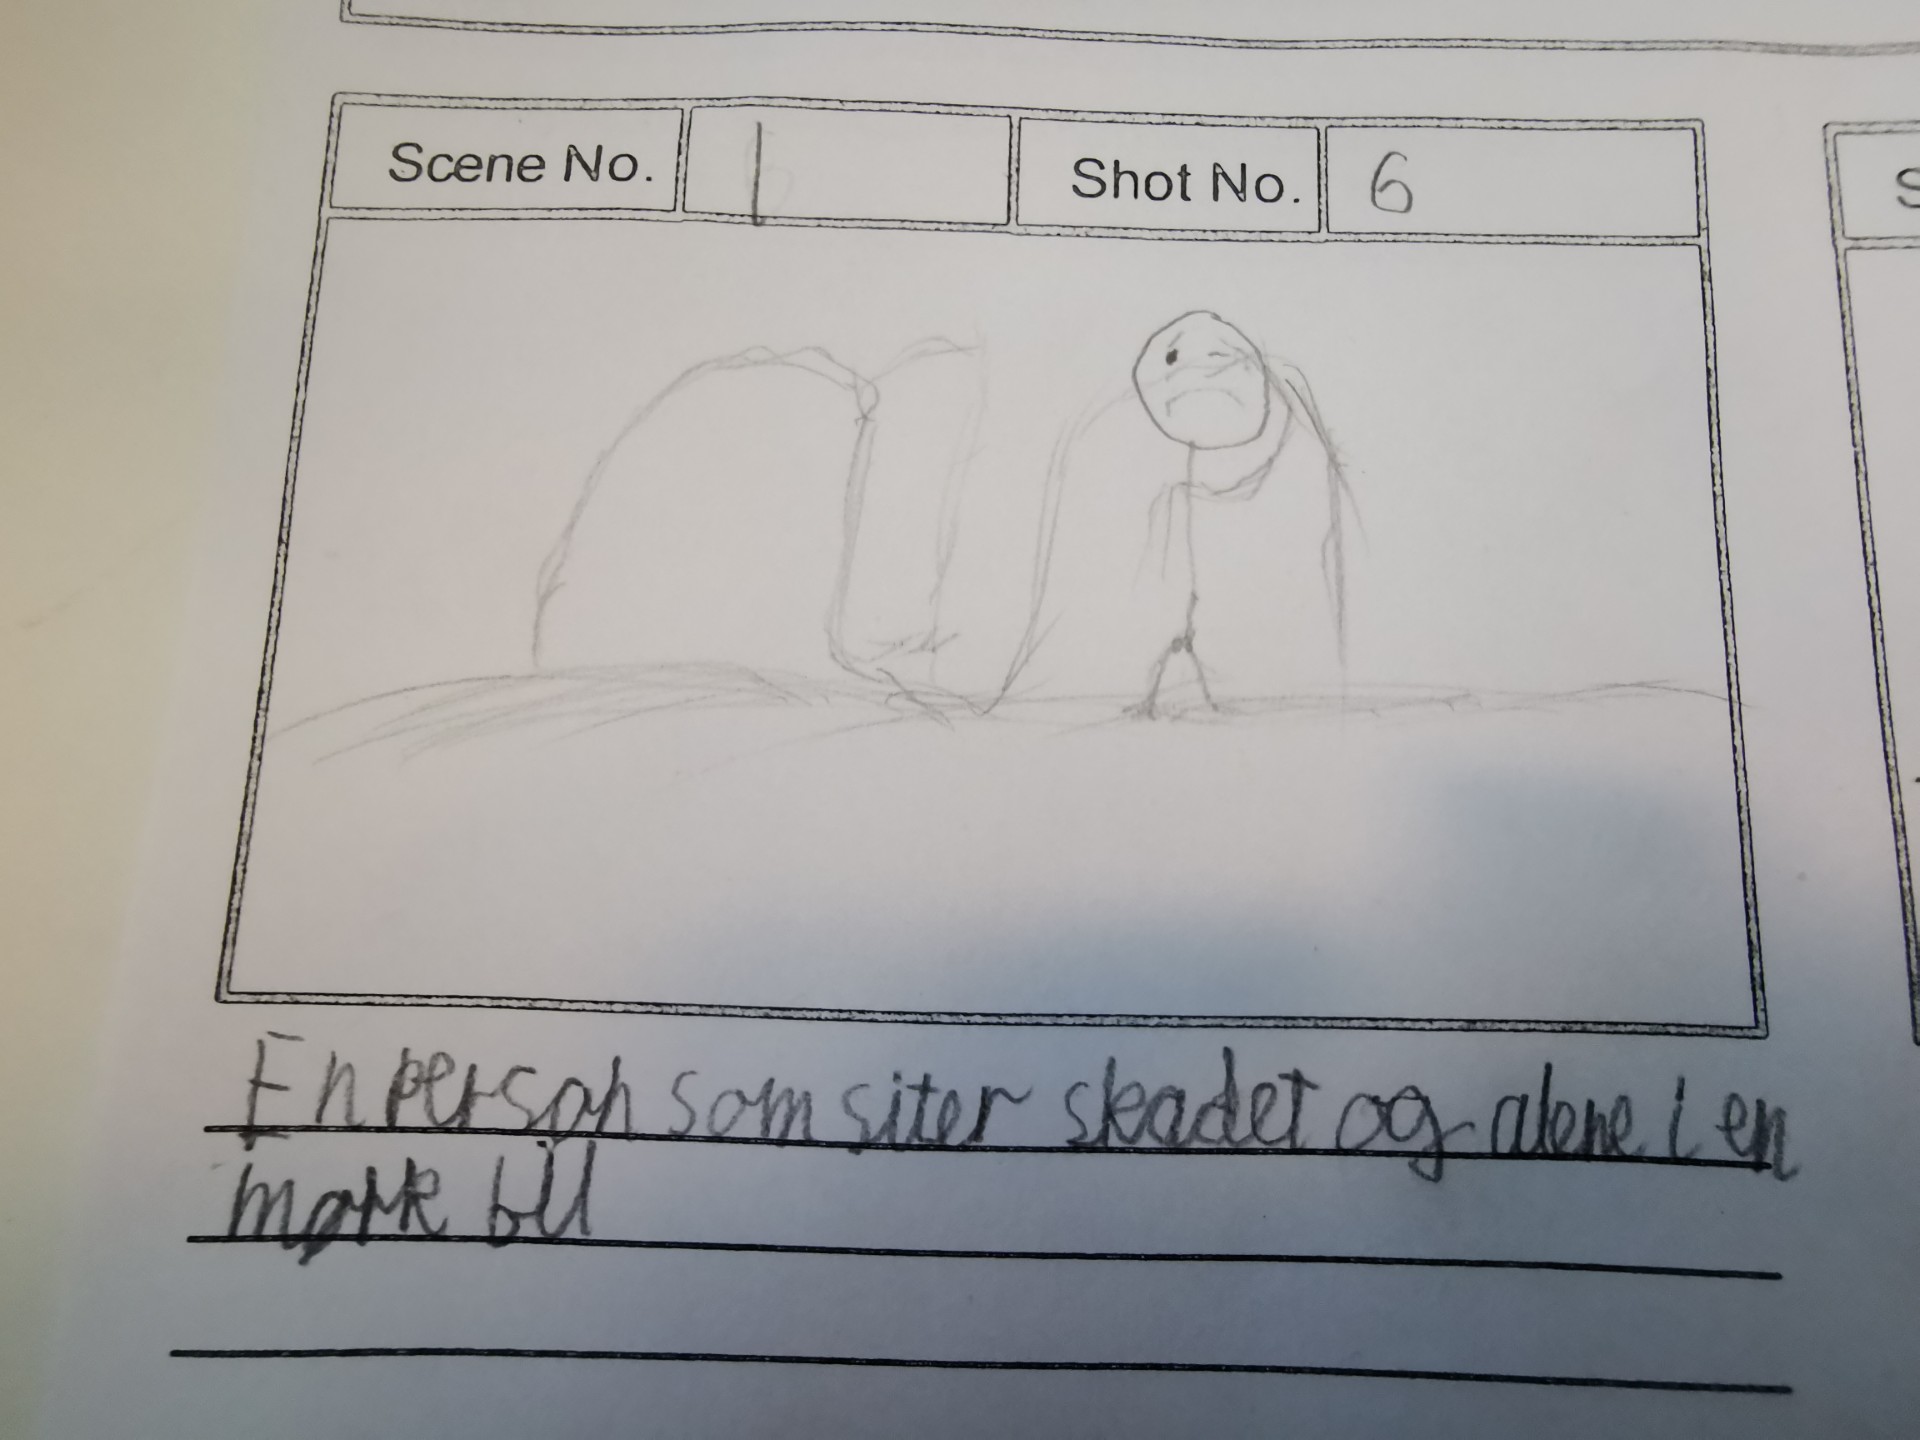 Scene No. 1 Shot No. 6
S
En person som siter skadet og alene i en
mørk bil